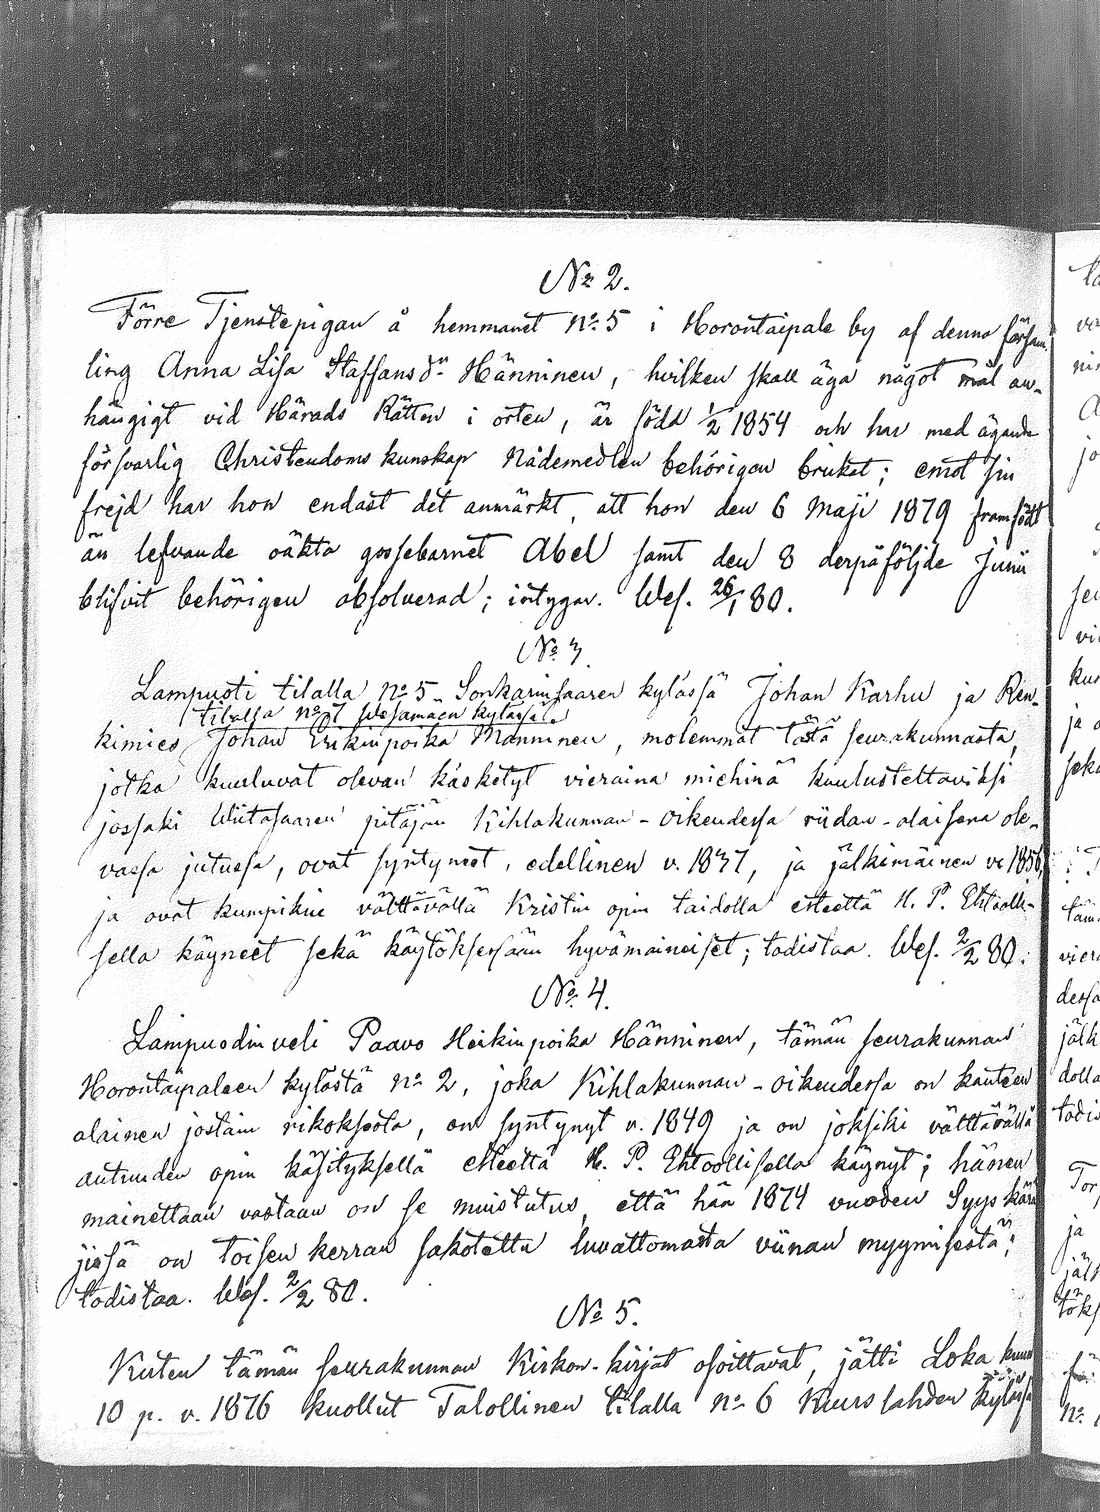 No 2.
Förre Tjenstepigan å hemmanet No 5 i Horontaipale by af denna försam
ling Anna Lisa Staffansdr Hänninen, hvilken skall äga något mål an-
hängigt vid Härads Rätten i orten, är född 1/2 1854 och har med ägande
försvarlig Christendoms kunskap Nådemedlen behörigen brukat; emot sin
frejd har hon endast det anmärkt, att hon den 6 Maji 1879 framfödt
än lefvande oäkta gossebarnet Abel samt den 8 derpåföljde Junii
blifvit behörigen absolverad; intygar. Wes. 26/1 80.
No 3.
Lampuoti tilalla No 5 Sonkarinsaaren kylässä Johan Karhu ja Ren-
tilalla No 7 Wesamäen kylässä
kimies Johan Erikinpoika Manninen, molemmat tästä seurakunnasta,
jotka kuuluvat olevan käsketyt vieraina miehinä kuulusteltaviksi
jossaki Wiitasaaren pitäjän Kihlakunnan-oikeudessa riidan-alaisena ole-
vassa jutussa, ovat syntyneet, edellinen v. 1837, ja jälkimäinen v. 1856,
ja ovat kumpikin välttävällä Kristin opin taidolla esteettä H. P. Ehtoolli-
sella käyneet sekä käytöksessään hyvämaineiset; todistaa. Wes. 2/2 80.
No 4.
Lampuodin veli Paavo Heikinpoika Hänninen, tämän seurakunnan
Horontaipaleen kylästä No 2, joka Kihlakunnan-oikeudessa on kanteen
alainen jostain rikoksesta, on syntynyt v. 1849 ja on joksiki välttävällä
autuuden opin käsityksellä esteettä H. P. Ehtoollisella käynyt; hänen
mainettaan vastaan on se muistutus, että hän 1874 vuoden Syyskärä
jissä on toisen kerran sakotettu luvattomasta viinan myymisestä;
todistaa. Wes. 2/2 80.
No 5.
Kuten tämän seurakunnan Kirkon-kirjat osoittavat, jätti Loka kuun
10 p. v. 1876 kuollut Talollinen tilalla No 6 Kuuslahden kylässä